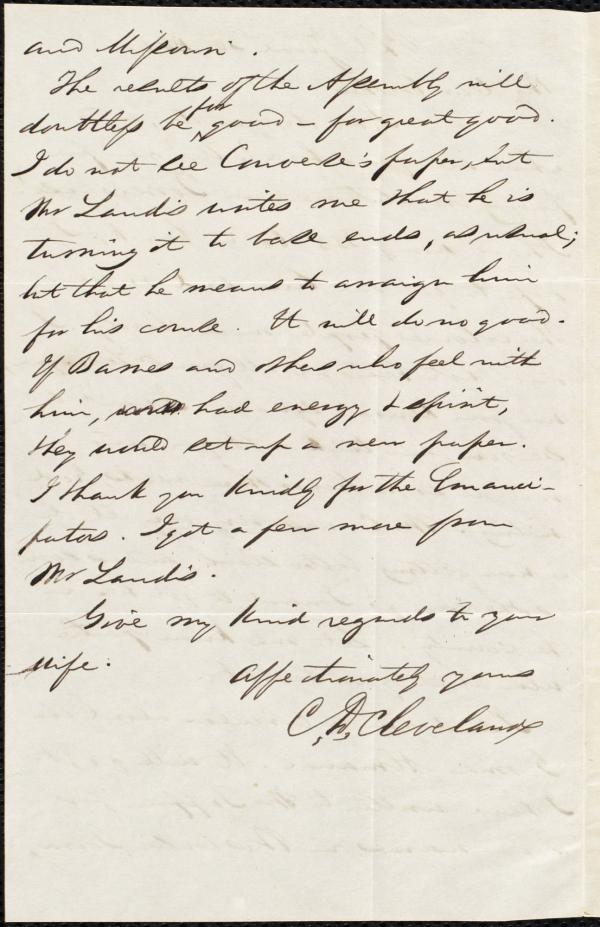 and Missouri.
The results of the Assembly will
doubtless be for good – for great good.
I do not see Converse's paper, but
Mr Landis writes me that he is
turning it to base ends, as usual;
but that he means to arraign him
for his course. It will do no good.
If Barnes and others who feel with
him, had energy & spirit,
they would set up a new paper.
I thank you kindly for the Emanci-
pators. I got a few more from
Mr Landis.
Give my kind regards to your
wife.
Affectionately yours
C. D. Cleveland